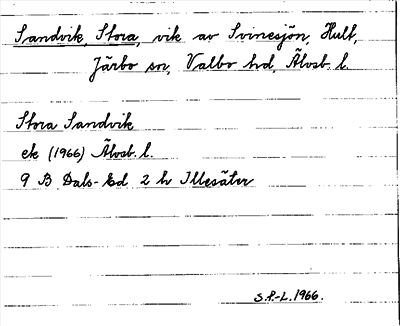 Sandvik, Stora, vik av Svinesjön, Hult,
Järbo sn, Valbo hd, Älvsb. l.
Stora Sandvik
ek (1966) Älvsb. l.
9 B Dals-Ed 2 h Illesäter
S.P.-L. 1966.